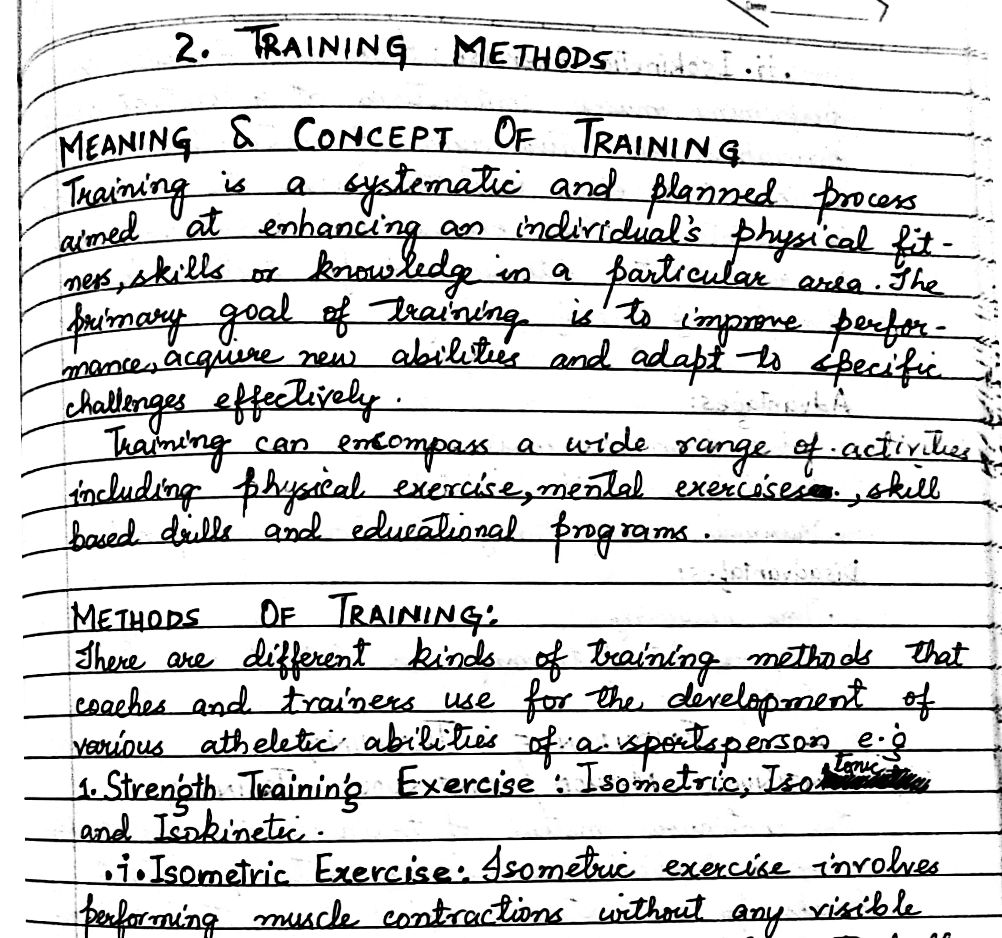 2. TRAINING METHODS
MEANING & CONCEPT OF TRAINING
Training is a systematic and planned process
aimed at enhancing an individual's physical fit-
ness, skills or knowledge in a particular area. The
primary goal of training is to improve perfor-
mance, acquire new abilities and adapt to specific
challenges effectively.
Training can encompass a wide range of activities
including physical exercise, mental exercises, skill
based drills and educational programs.
METHODS OF TRAINING:
There are different kinds of training methods that
coaches and trainers use for the development of
various atheletic abilities of a sportsperson e.g
1. Strength Training Exercise: Isometric, Isotonic
and Isokinetic.
i. Isometric Exercise: Isometric exercise involves
performing muscle contractions without any visible